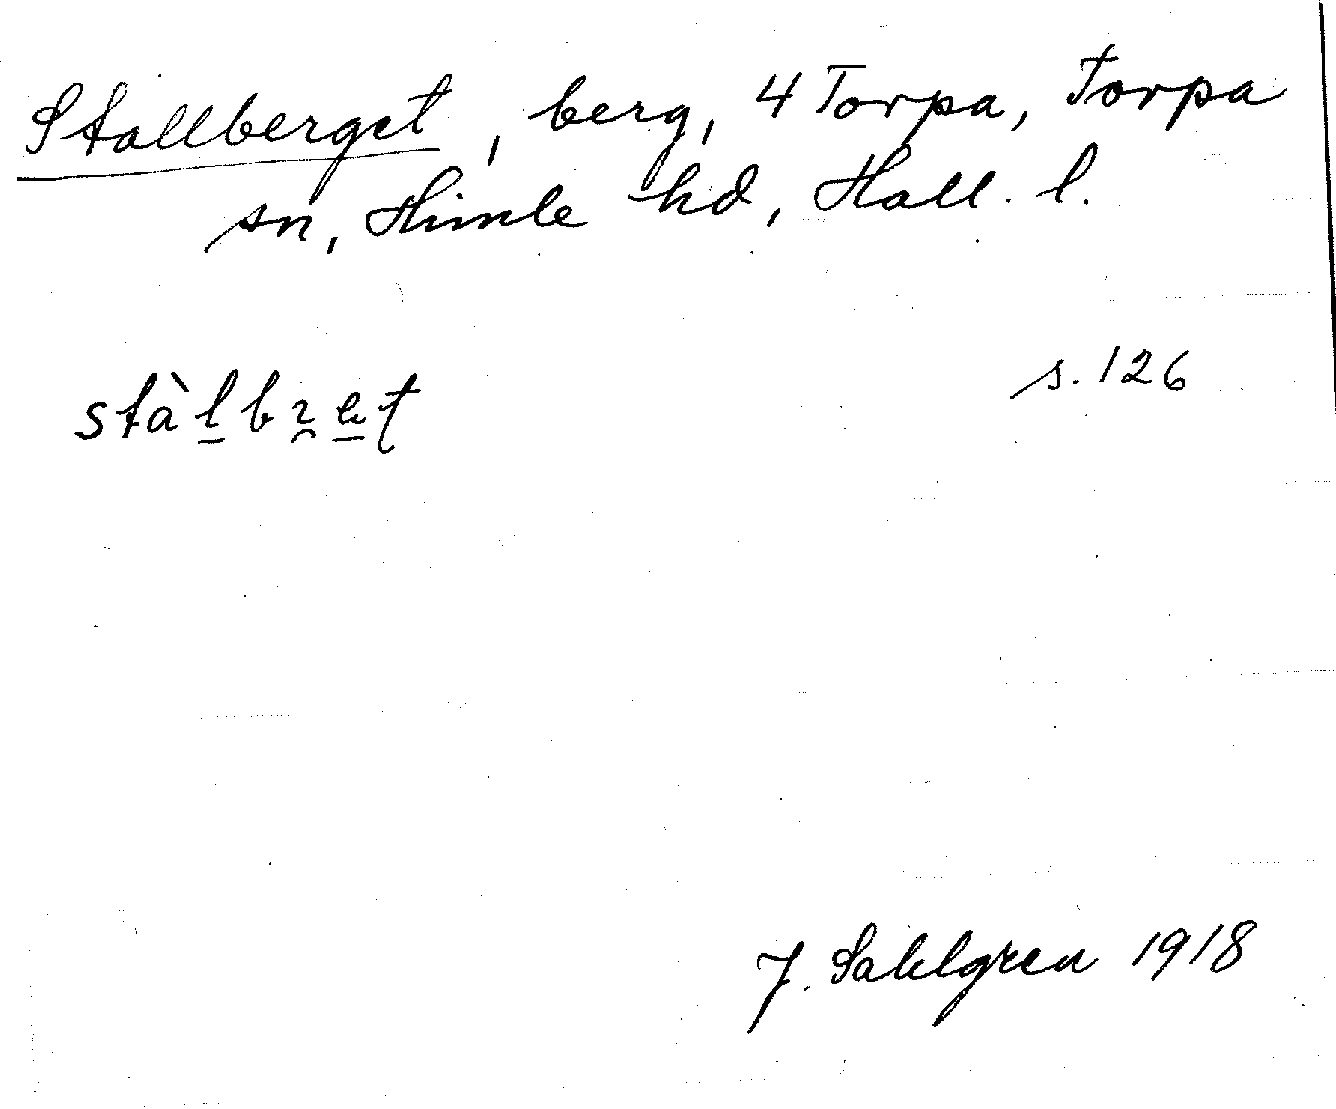 Stallberget, berg, 4 Torpa, Torpa
sn, Himle hd, Hall. l.
s. 126
J. Sahlgren 1918